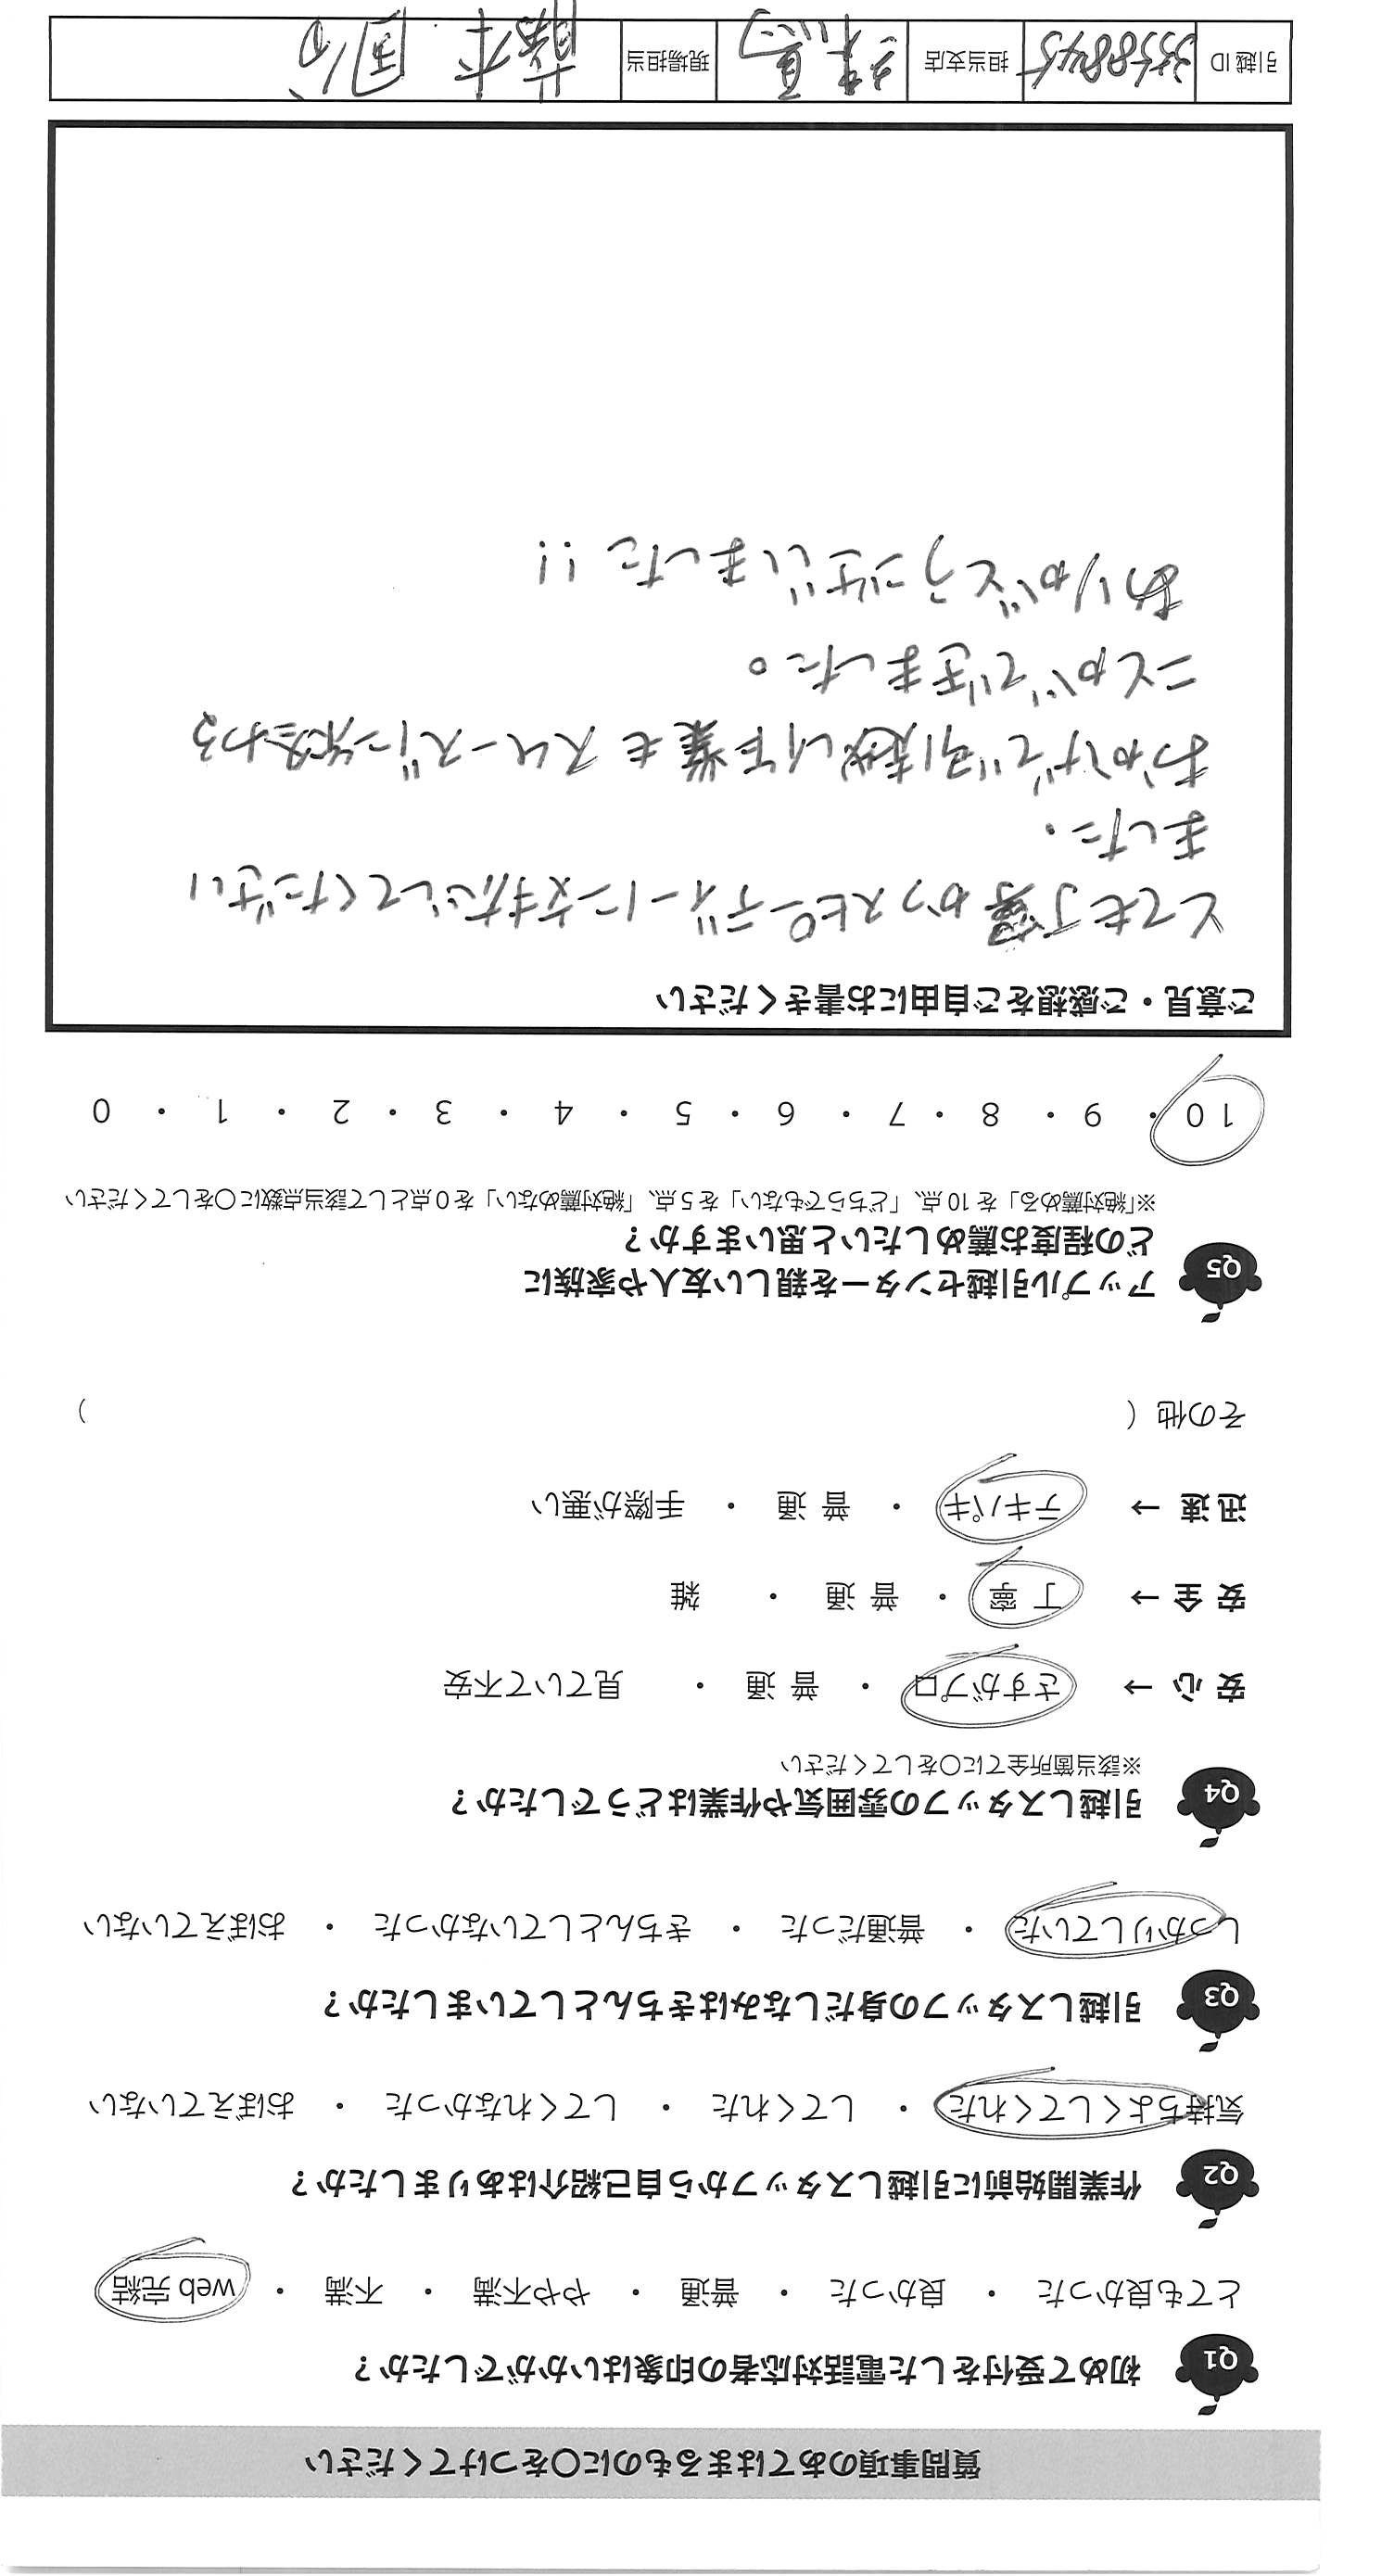 質問事項のあてはまるものに〇をつけてください
Q1 初めて受付をした電話対応者の印象はいかがでしたか？
とても良かった ・ 良かった ・ 普通 ・ やや不満 ・ 不満 ・ web 完結
Q2 作業開始前に引越しスタッフから自己紹介はありましたか？
気持ちよくしてくれた ・ してくれた ・ してくれなかった ・ おぼえていない
Q3 引越しスタッフの身だしなみはきちんとしていましたか？
しっかりしていた ・ 普通だった ・ きちんとしていなかった ・ おぼえていない
Q4 引越しスタッフの雰囲気や作業はどうでしたか？
※該当箇所全てに〇をしてください
安 心 → さすがプロ ・ 普 通 ・ 見ていて不安
安 全 → 丁 寧 ・ 普 通 ・ 雑
迅 速 → テキパキ ・ 普 通 ・ 手際が悪い
その他（ ）
Q5 アップル引越センターを親しい友人や家族に
どの程度お薦めしたいと思いますか？
※「絶対薦める」を 10 点、「どちらでもない」を 5 点、「絶対薦めない」を 0 点として該当点数に〇をしてください
10 ・ 9 ・ 8 ・ 7 ・ 6 ・ 5 ・ 4 ・ 3 ・ 2 ・ 1 ・ 0
ご意見・ご感想をご自由にお書きください
とても丁寧かつスピーディーに対応してください
ました.
おかげで引越し作業もスムーズに終わる
ことができました。
ありがとうございました!!
引越 ID 3558845 担当支店 練馬 現場担当 藤本